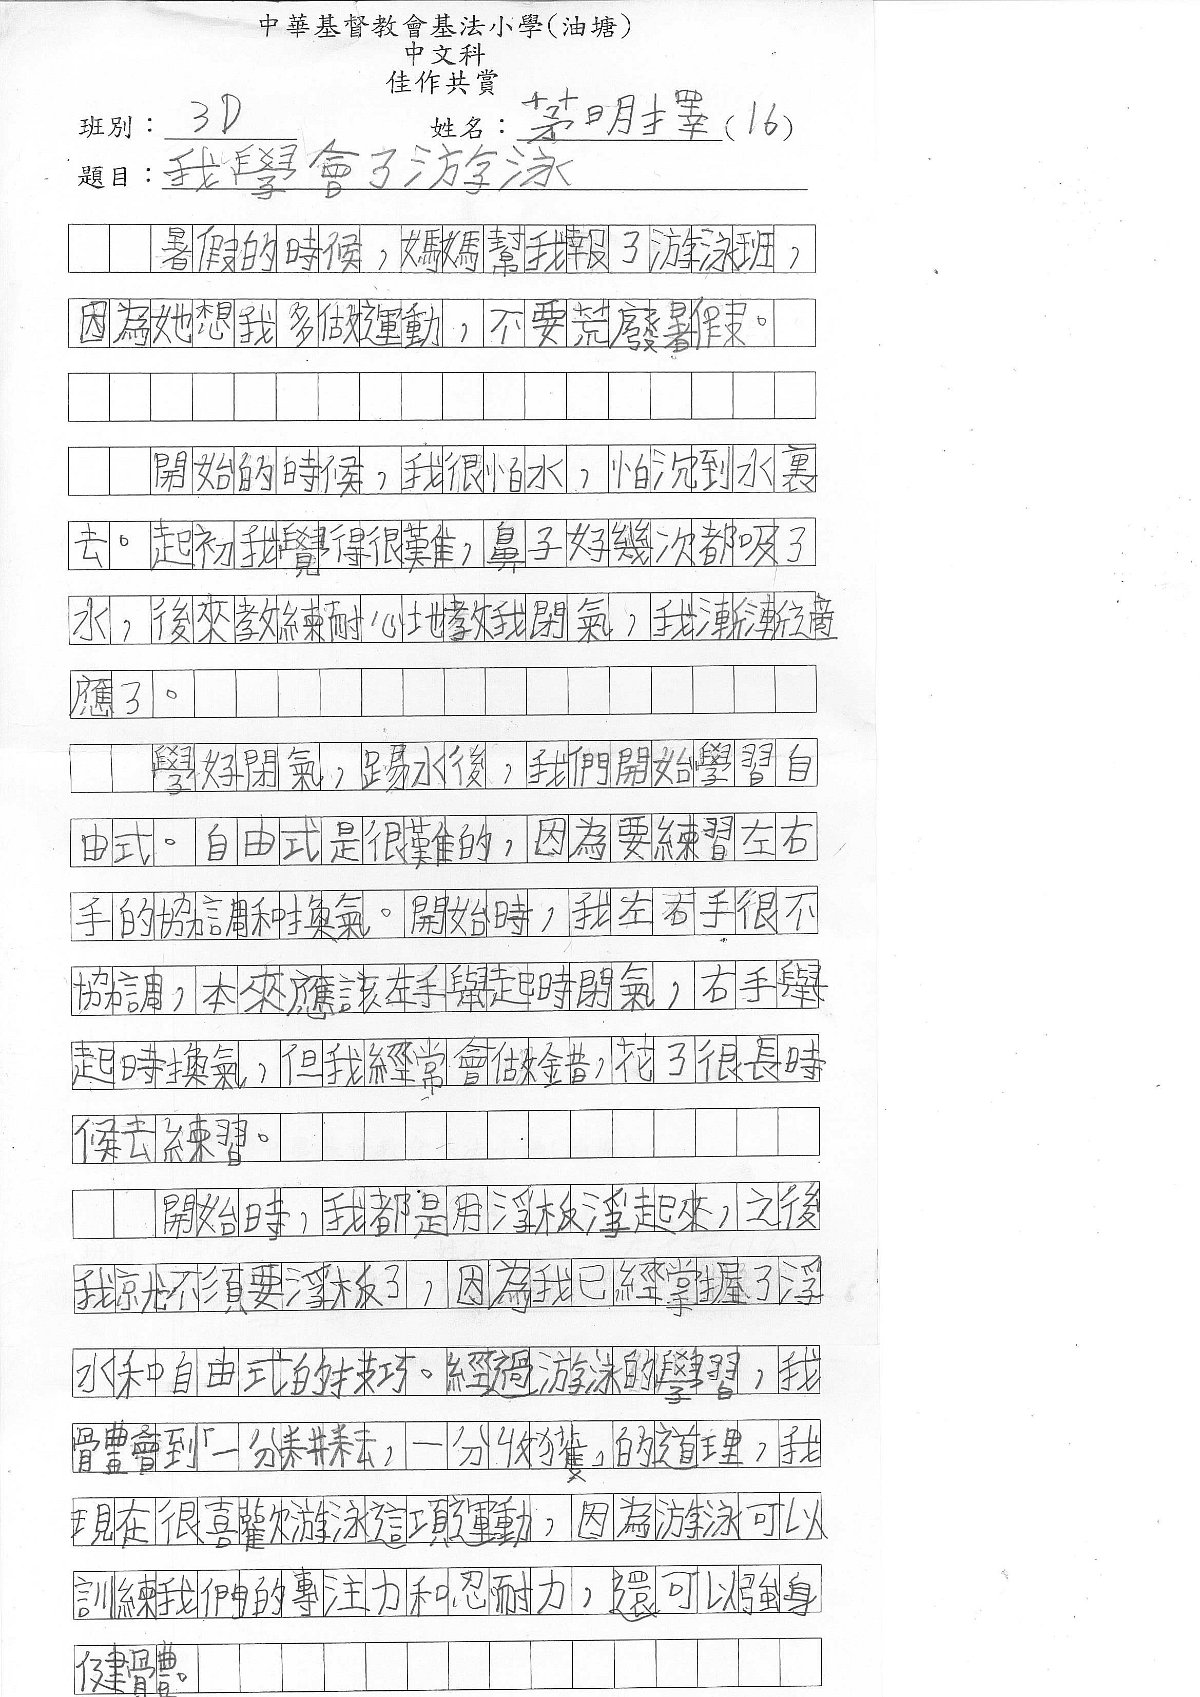 中華基督教會基法小學(油塘)
中文科
佳作共賞
班別：3D 姓名：茅明擇(16)
題目：我學會了游泳
暑假的時候，媽媽幫我報了游泳班，
因為她想我多做運動，不要荒廢暑假。
開始的時候，我很怕水，怕沉到水裏
去。起初我覺得很難，鼻子好幾次都吸了
水，後來教練耐心地教我閉氣，我漸漸適
應了。
學好閉氣，踢水後，我們開始學習自
由式。自由式是很難的，因為要練習左右
手的協調和換氣。開始時，我左右手很不
協調，本來應該左手舉起時閉氣，右手舉
起時換氣，但我經常會做錯，花了很長時
候去練習。
開始時，我都是用浮板浮起來，之後
我就不須要浮板了，因為我已經掌握了浮
水和自由式的技巧。經過游泳的學習，我
體會到「一分耕耘，一分收獲，的道理，我
現在很喜歡游泳這項運動，因為游泳可以
訓練我們的專注力和忍耐力，還可以強身
健體。